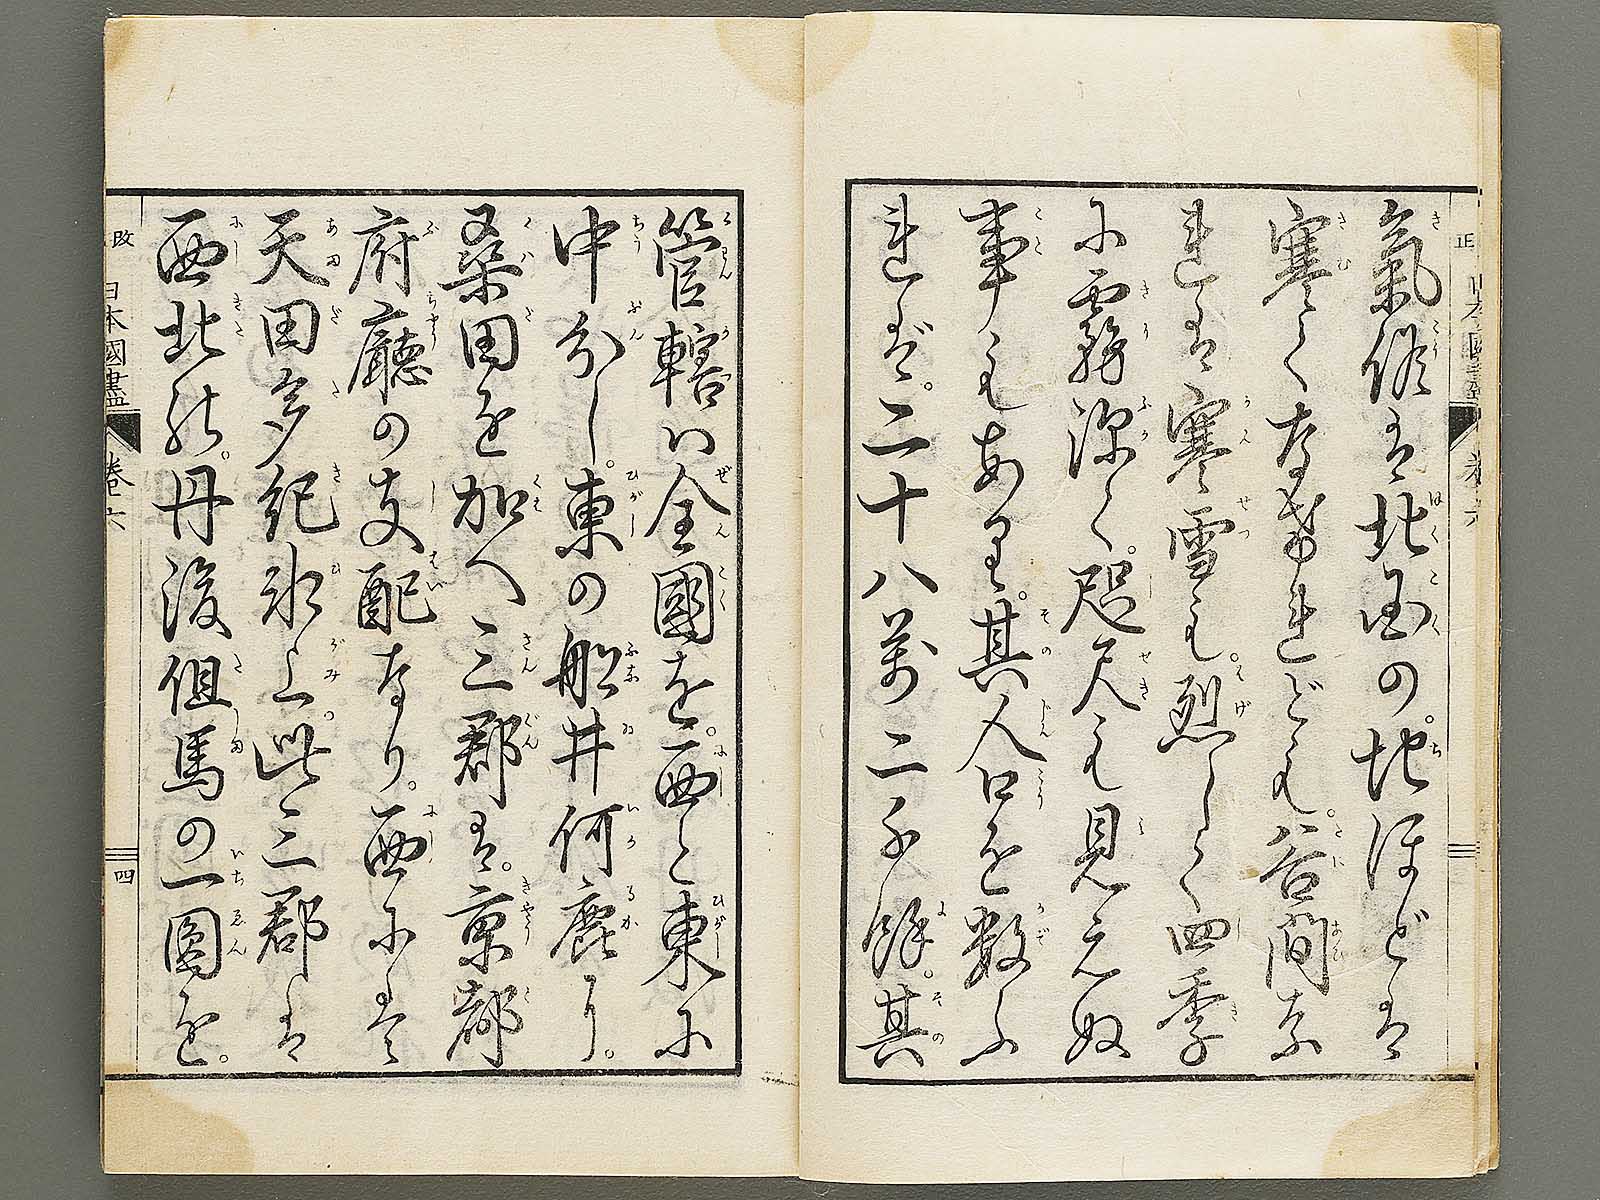 氣候は北国の地ほどは
寒くなけれども谷間な
れは寒雪も烈しく四季
に霧深く咫尺も見えぬ
事もあり其人口を数ふ
れば二十八萬二千餘其
管轄ハ全國を西と東に
中分し東の船井何鹿に
桑田を加へ三郡は京都
府廳の支配なり西には
天田多紀氷上此三郡は
西北の丹後但馬の一圓を
改 日本國盡 卷六 四